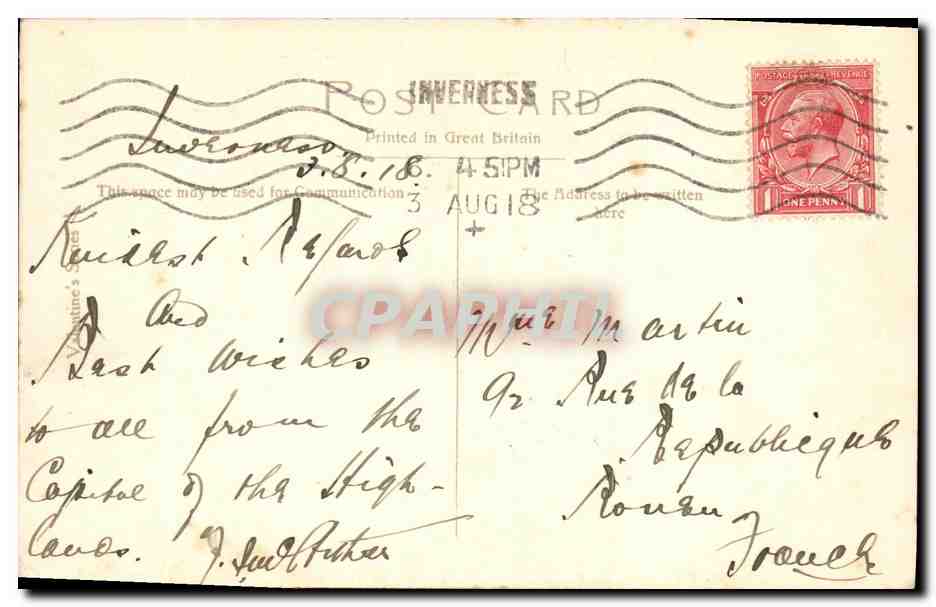 POST CARD
INVERNESS
Printed in Great Britain
Inverness
3.8.18.
4 51PM
3 AUG 18
This space may be used for Communication
The Address to be written
here
POSTAGE REVENUE
1 ONE PENNY 1
Valentine's Series
Kindest Regards
and
Best Wishes
to all from the
Capital of the High-
lands.
CPAPHIL
Martin
92 Rue de la
Republique
Rouen
France